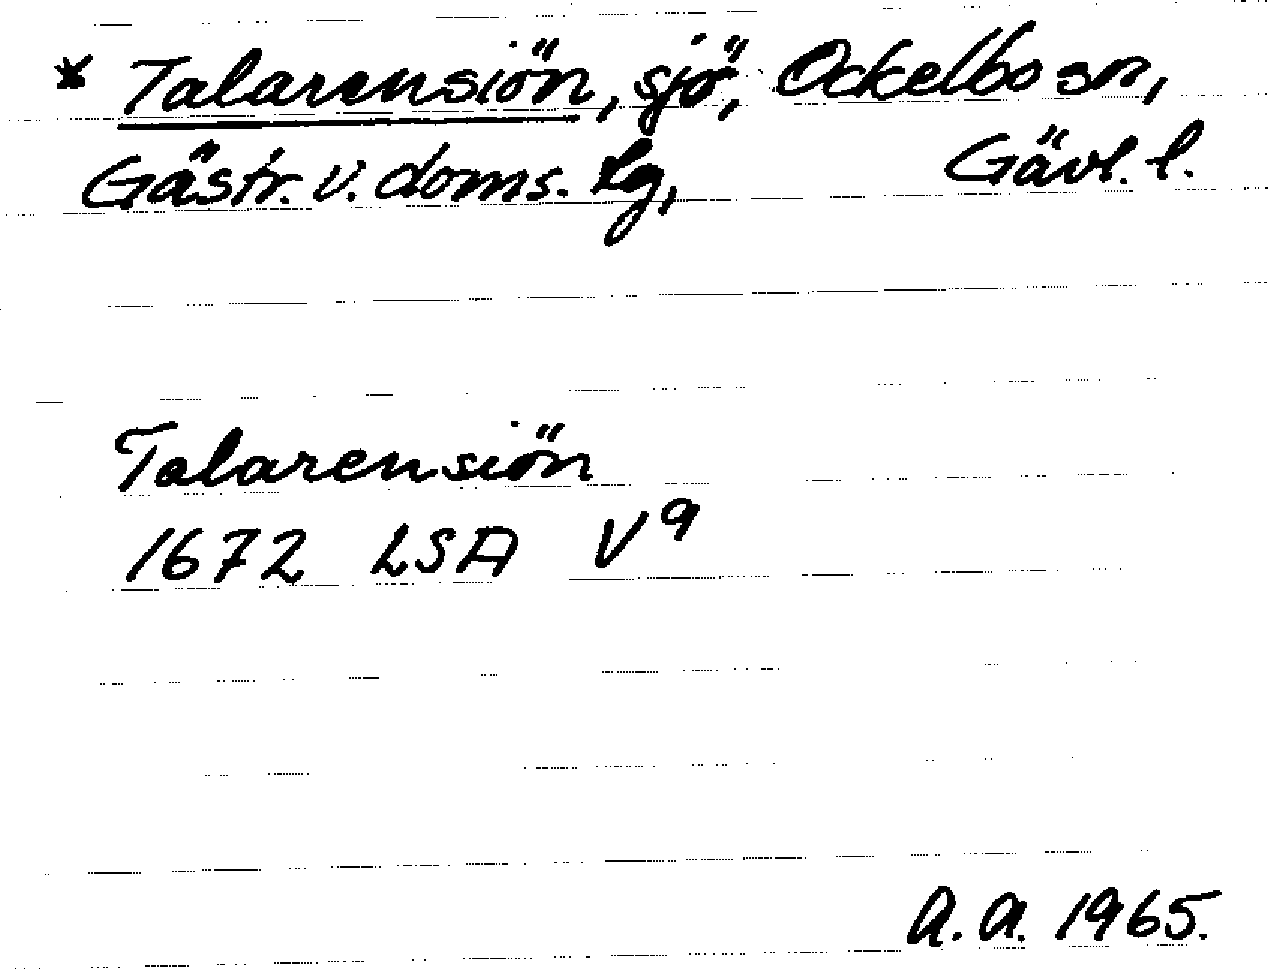 * Talarensiön, sjö, Ockelbo sn,
Gästr. v. doms. lg, Gävl. l.
Talarensiön
1672 LSA V9
A. A. 1965.